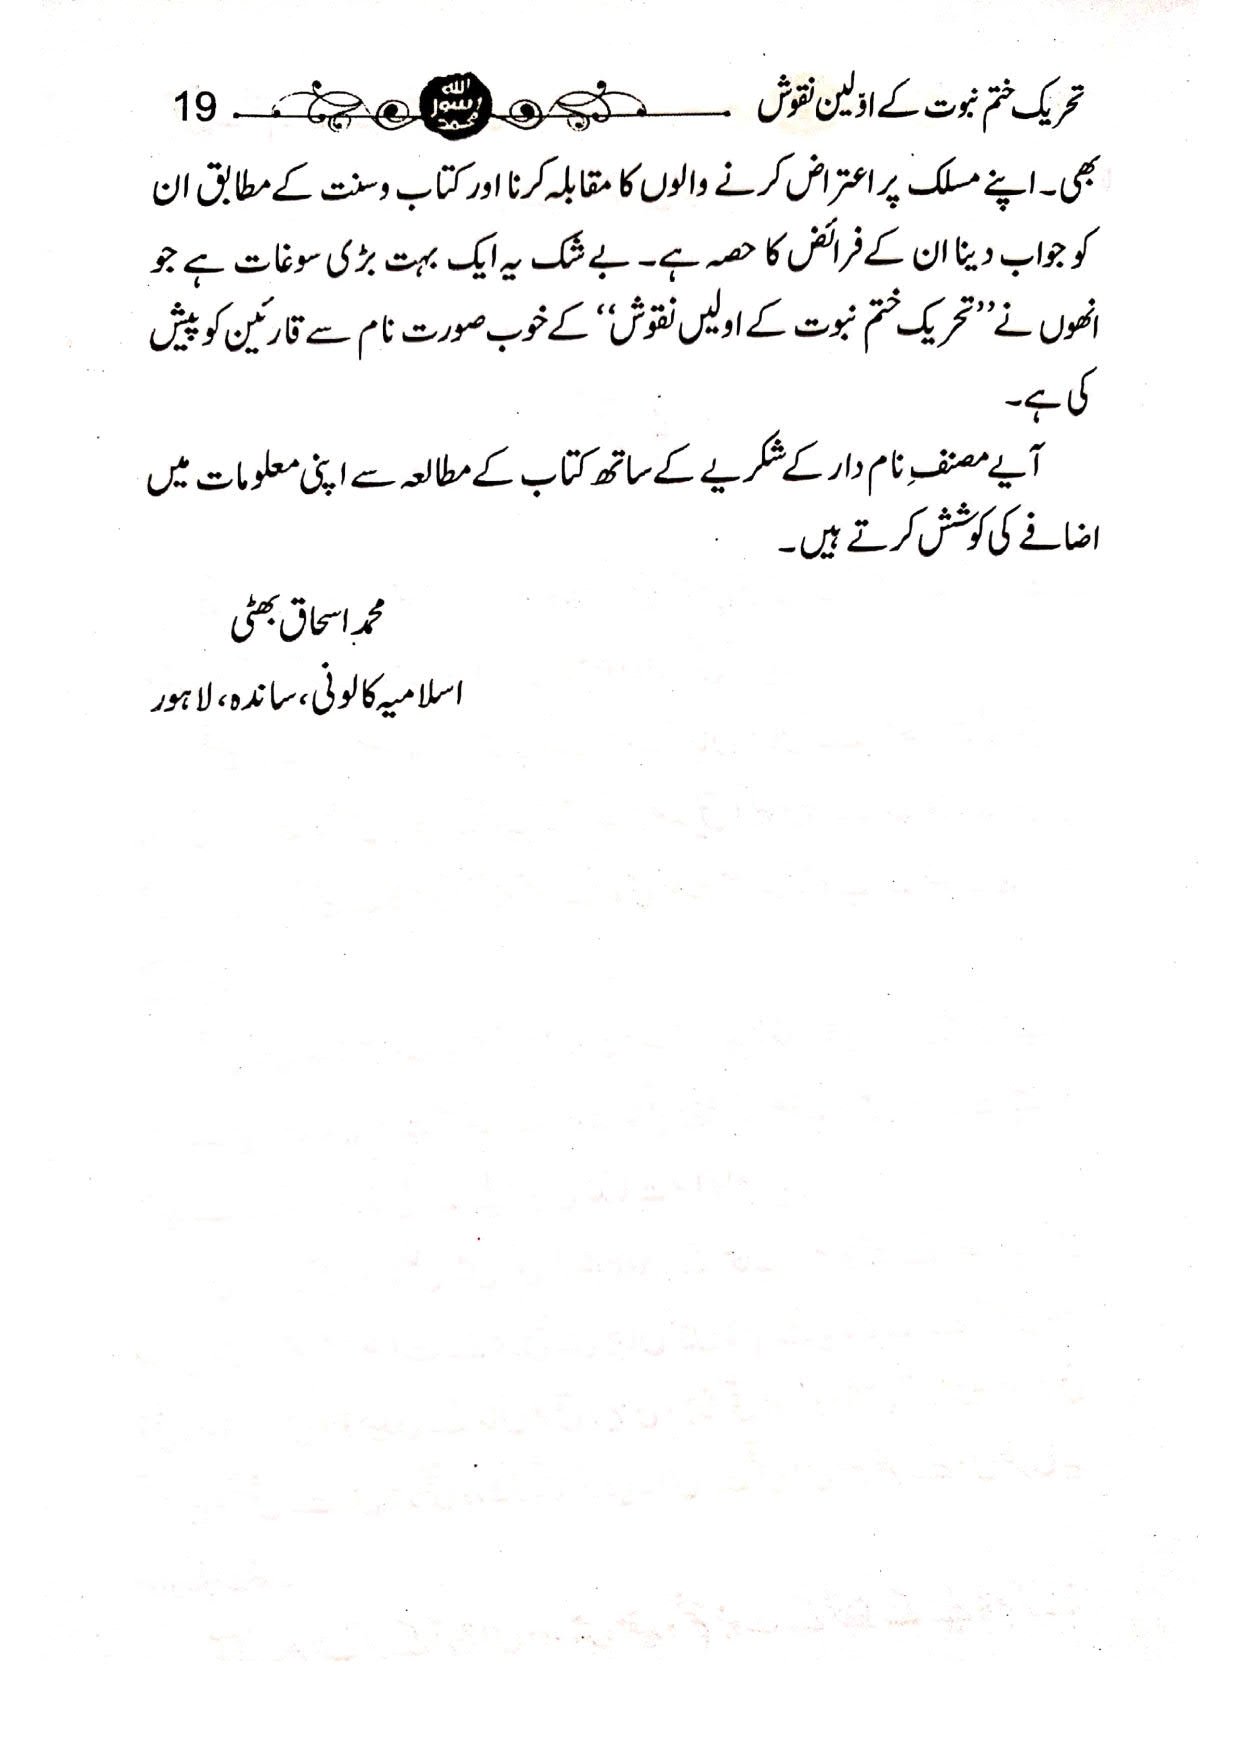 تحریک ختم نبوت کے اوّلین نقوش
الله
رسول
محمد
19
بھی۔ اپنے مسلک پر اعتراض کرنے والوں کا مقابلہ کرنا اور کتاب وسنت کے مطابق ان
کو جواب دینا ان کے فرائض کا حصہ ہے۔ بے شک یہ ایک بہت بڑی سوغات ہے جو
انھوں نے ’’تحریک ختم نبوت کے اولیں نقوش‘‘ کے خوب صورت نام سے قارئین کو پیش
کی ہے۔
آیے مصنفِ نام دار کے شکریے کے ساتھ کتاب کے مطالعہ سے اپنی معلومات میں
اضافے کی کوشش کرتے ہیں۔
محمد اسحاق بھٹی
اسلامیہ کالونی، ساندہ، لاہور